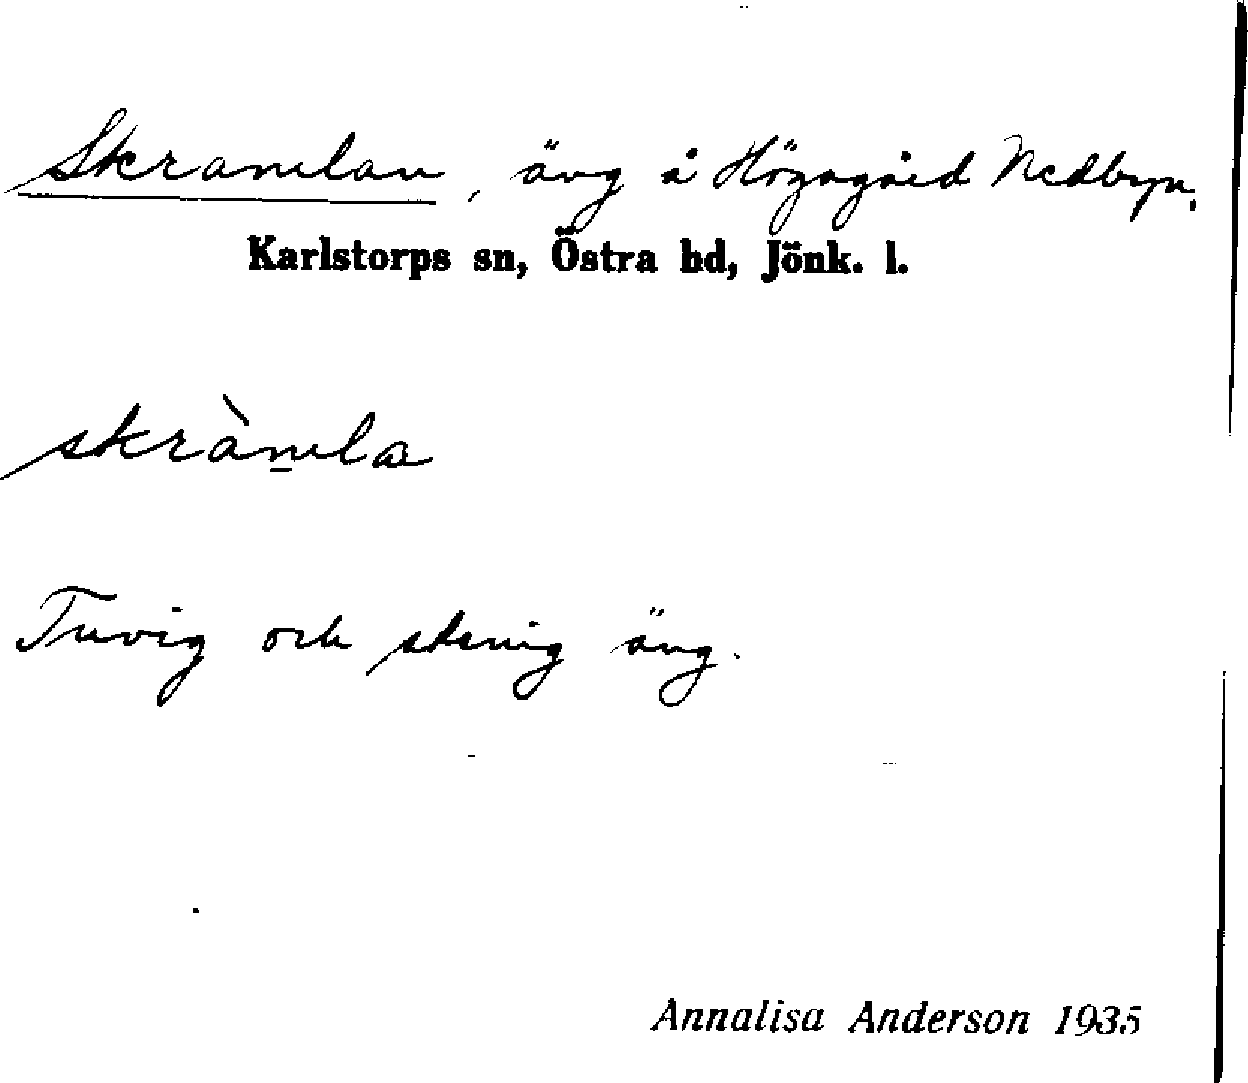 Skramlan, äng å Högagärd Nedbyn.
Karlstorps sn, Östra hd, Jönk. l.
skràm̱la
Tuvig och stenig äng.
Annalisa Anderson 1935